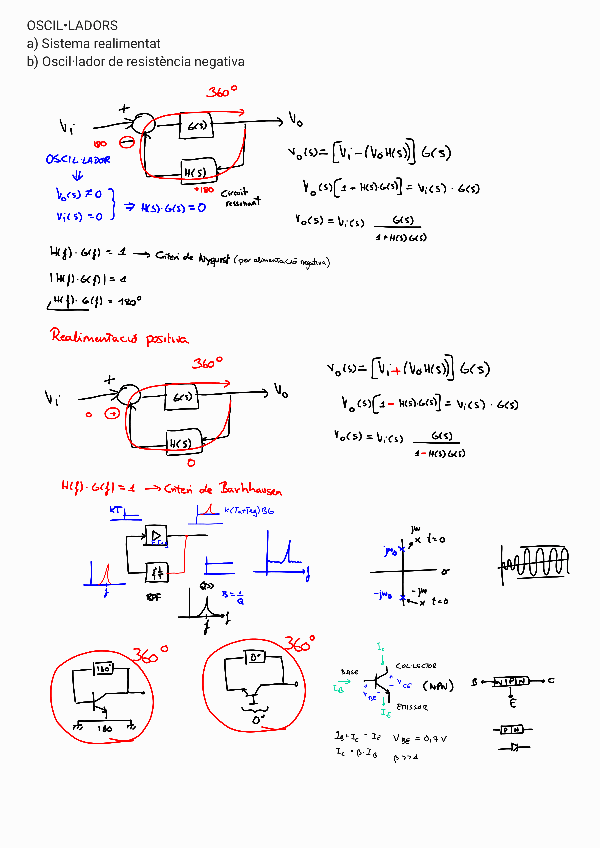 OSCIL•LADORS
a) Sistema realimentat
b) Oscil·lador de resistència negativa
360°
+
Vi
G(s)
Vo
180
−
H(s)
+180
Circuit
ressonant
OSCIL·LADOR
Vo(s) ≠ 0
Vi(s) = 0
⇒ H(s)·G(s) = 0
Vo(s) = [Vi − (Vo H(s))] G(s)
Vo(s)[1 + H(s)G(s)] = Vi(s) · G(s)
Vo(s) = Vi(s) G(s)
1 + H(s)G(s)
H(f) · G(f) = 1 → Criteri de Nyquist (per alimentació negativa)
|H(f)·G(f)| = 1
∠H(f)·G(f) = 180°
Realimentació positiva
360°
+
Vi
G(s)
Vo
0
+
H(s)
0
Vo(s) = [Vi + (Vo H(s))] G(s)
Vo(s)[1 − H(s)G(s)] = Vi(s) · G(s)
Vo(s) = Vi(s) G(s)
1 − H(s)G(s)
H(f)·G(f) = 1 → Criteri de Barkhausen
KT
K(To+Teq)BG
BPF
Q>>
B = 1/Q
f
f
f
jω
jωo
x t=0
σ
−jωo
−jω
x t=0
360°
180°
180
360°
0°
0°
Ic
COL·LECTOR
BASE
IB
VCE
(NPN)
VBE
EMISSOR
IE
B
N P N
C
E
IB + Ic = IE
VBE = 0,7V
Ic = β·IB
β>>1
P N